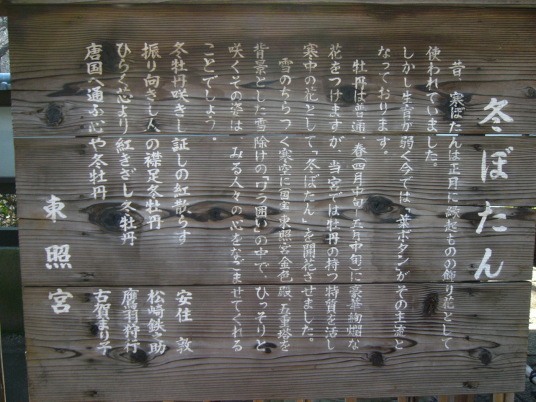 冬ぼたん
昔、寒ぼたんは正月に縁起ものの飾り花として
使われていました。
しかし、生育が弱く今では、葉ボタンがその主流と
なっております。
牡丹は普通、春(四月中旬〜五月中旬)に豪華絢爛な
花をつけますが、当宮では牡丹の持つ特質を活し
寒中の花として「冬ぼたん」を開花させました。
雪のちらつく寒空に国宝東照宮金色殿、五重塔を
背景とし、雪除けの「ワラ囲い」の中で、ひっそりと
咲くその姿は、みる人々の心をなごませてくれる
ことでしょう。
冬牡丹咲きし証しの紅散らす 安住 敦
振り向きざま人の襟足冬牡丹 松崎鉄之助
ひらく芯より紅きざし冬牡丹 鷹羽狩行
唐国へ通ふ心や冬牡丹 古賀まり子
東照宮